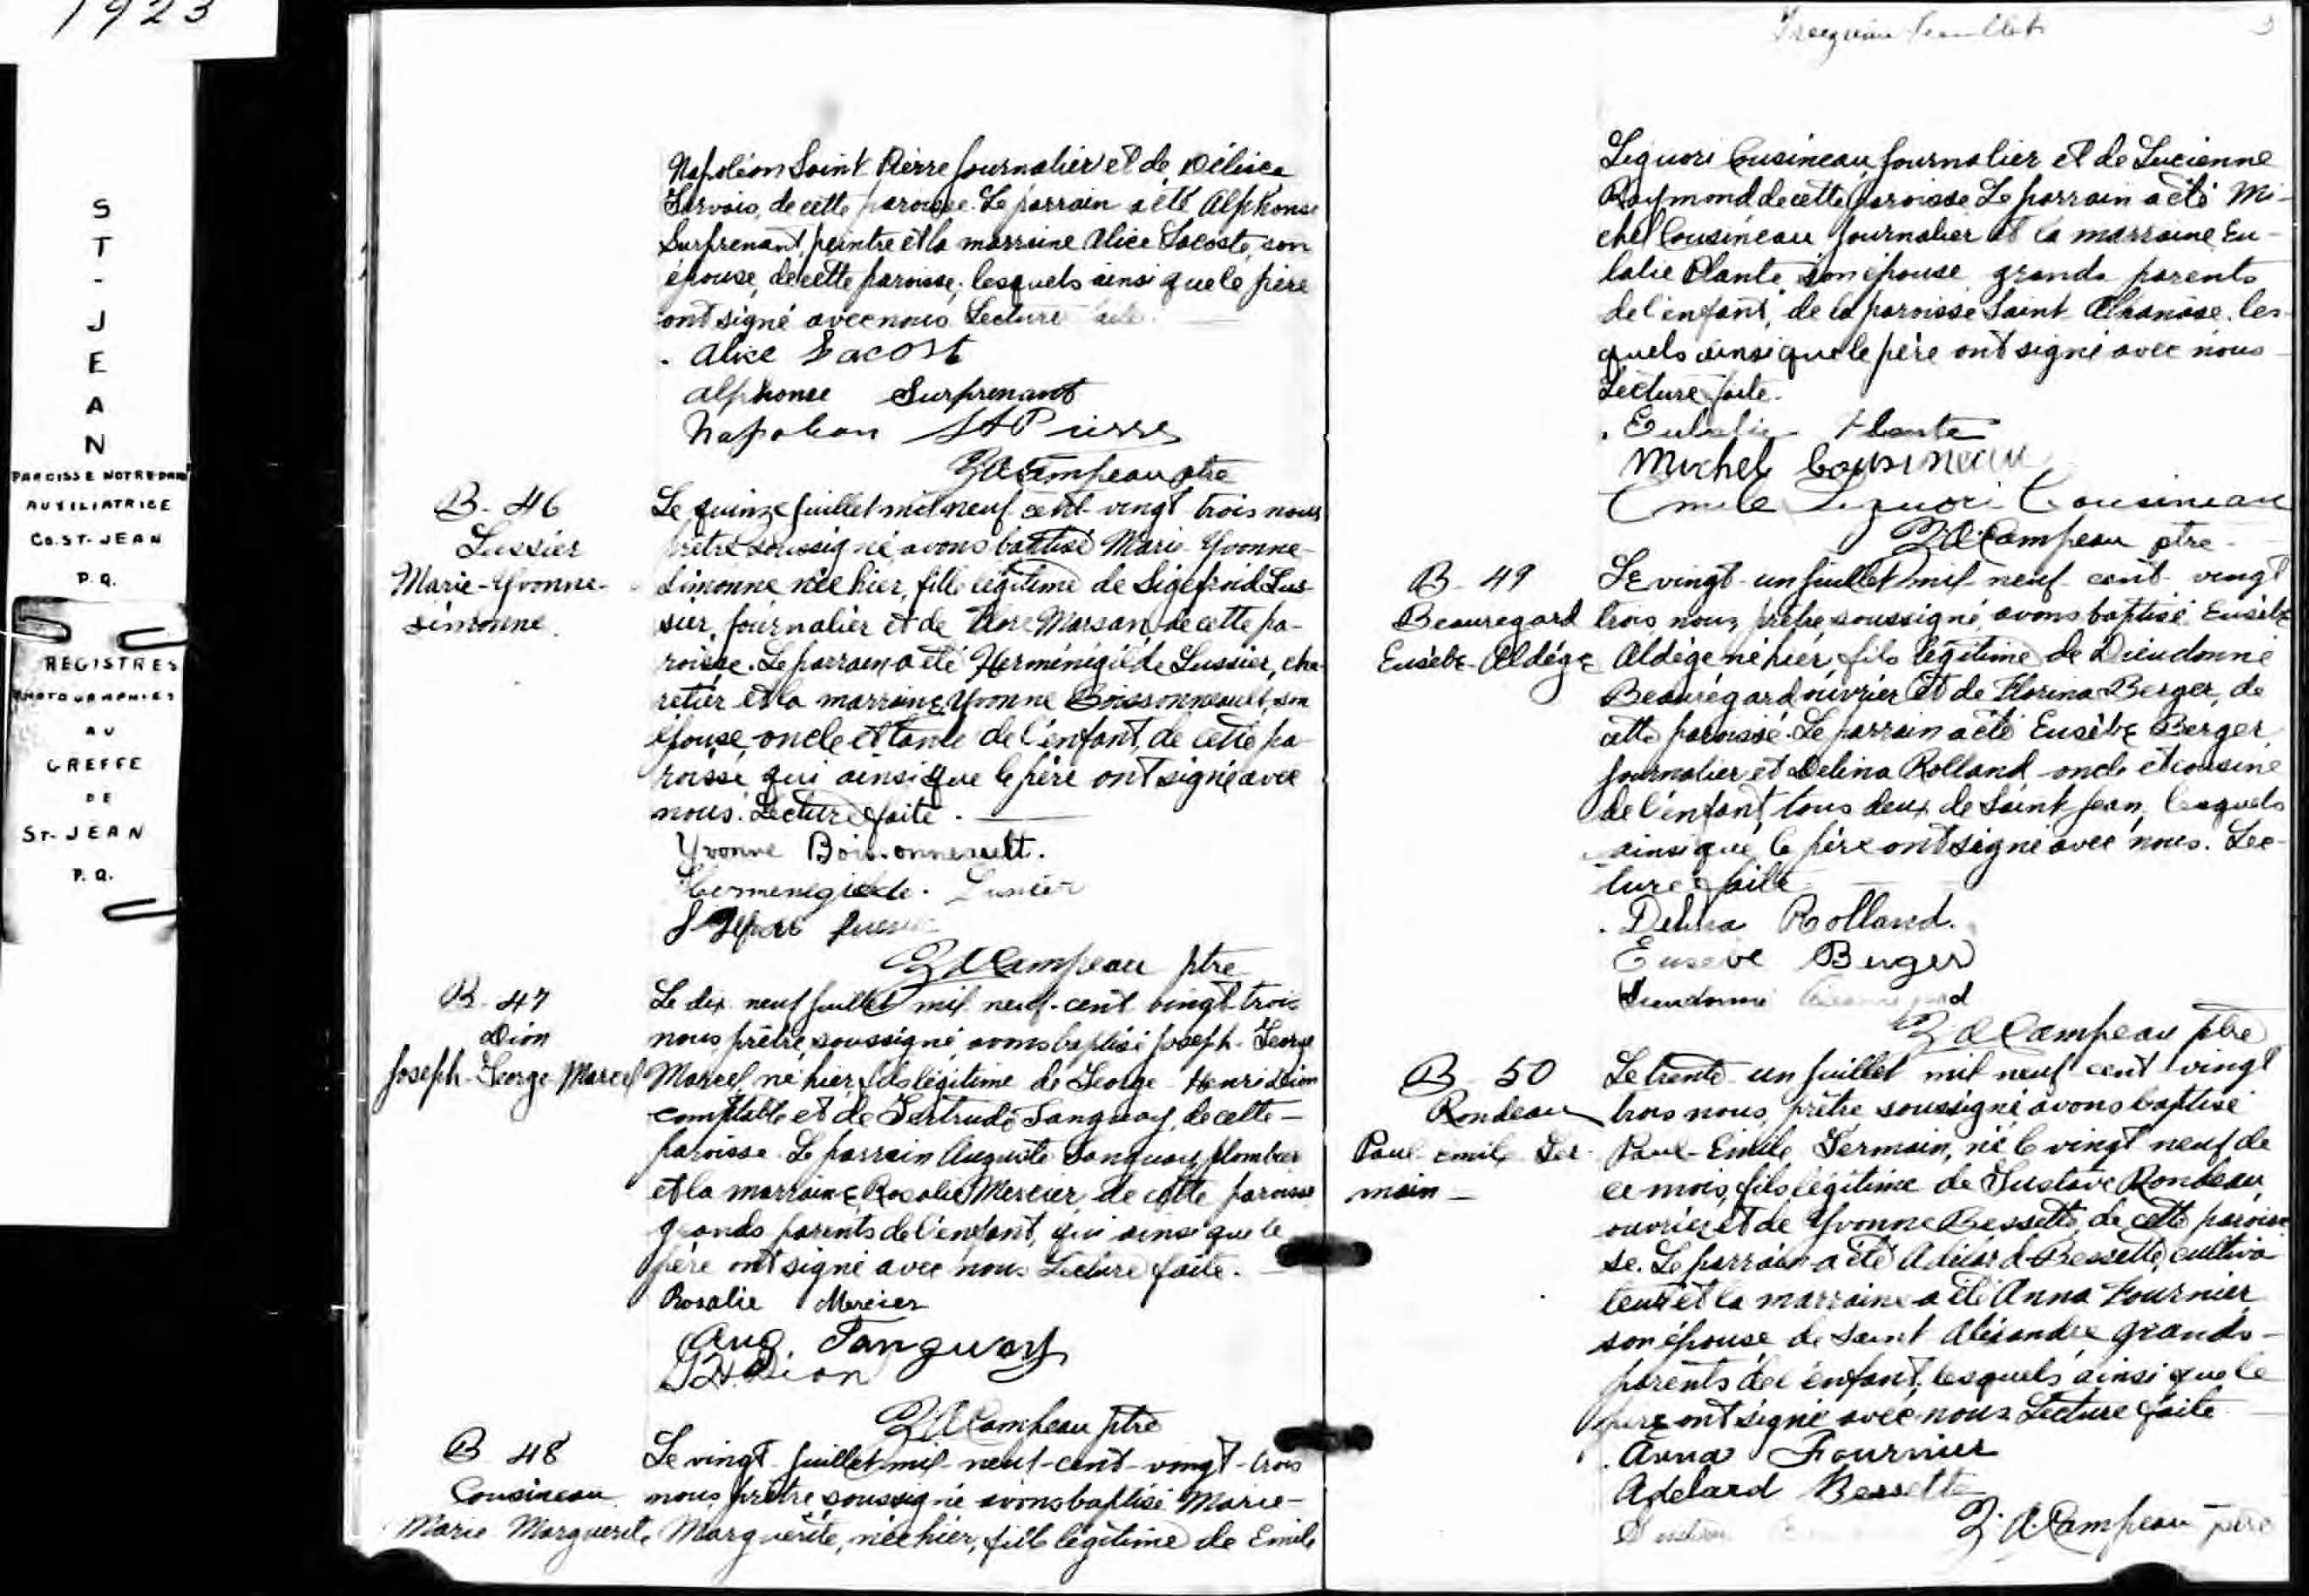 1923
S
T
-
J
E
A
N
PAROISSE NOTRE-DAME
AUXILIATRICE
CO. ST-JEAN
P.Q.
REGISTRES
PHOTOGRAPHIES
AU
GREFFE
DE
ST-JEAN
P.Q.
Napoléon Saint Pierre journalier et de Délisca
Gervais, de cette paroisse. Le parrain a été Alphonse
Surprenant, peintre et la marraine Alice Lacoste, son
épouse, de cette paroisse, lesquels ainsi que le père
ont signé avec nous Lecture faite.
Alice Lacost
Alphonse Surprenant
Napoleon St Pierre
Z A Campeau ptre
B-46
Lussier
Marie-Yvonne-
simonne.
Le quinze juillet mil neuf cent vingt trois nous
prêtre soussigné avons baptisé Marie Yvonne
Simonne née hier, fille légitime de Sigefroid Lus-
sier, journalier et de Flore Marsan, de cette pa-
roisse. Le parrain a été Herménégilde Lussier, cha-
retier et la marraine Yvonne Boissonneault, son
épouse, oncle et tante de l'enfant, de cette pa-
roisse qui ainsi que le père ont signé avec
nous. Lecture faite.
Yvonne Boissonneault.
Hermenegilde. Lussier
Z A Campeau ptre
B-47
Dion
Joseph-George-Marcel
Le dix neuf juillet mil neuf-cent vingt-trois
nous, prêtre, soussigné, avons baptisé Joseph-George
Marcel, né hier, fils légitime de George-Henri Dion
comptable et de Gertrude Tanguay, de cette-
paroisse. Le parrain Auguste Tanguay, plombier
et la marraine Rosalie Mercier, de cette paroisse
grands parents de l'enfant, qui ainsi que le
père ont signé avec nous Lecture faite.
Rosalie Mercier
Aug. Tanguay
G H. Dion
Z A Campeau ptre
B 48
Cousineau
Marie Marguerite
Le vingt-juillet mil-neuf-cent-vingt-trois
nous prêtre soussigné avons baptisé Marie-
Marguerite, née hier, fille légitime de Emile
feuillet
Liguori Cousineau, journalier et de Lucienne
Raymond de cette paroisse. Le parrain a été Mi-
chel Cousineau journalier et la marraine Eu-
lalie Plante, son épouse grands parents
de l'enfant, de la paroisse Saint Athanase, les-
quels ainsi que le père ont signé avec nous
Lecture faite.
Eulalie Plante
Michel Cousineau
Emile Liguori Cousineau
Z A Campeau ptre-
B-49
Beauregard
Eusèbe-Aldége
Le vingt-un juillet mil neuf cent vingt
trois, nous, prêtre, soussigné, avons baptisé Eusèbe
Aldége né hier, fils légitime de Dieudonné
Beauregard ouvrier et de Florina Berger, de
cette paroisse. Le parrain a été Eusèbe Berger
journalier et Delina Rolland oncle et cousine
de l'enfant, tous deux de Saint Jean, lesquels
ainsi que le père ont signé avec nous. Lec-
ture faite
Delina Rolland.
Euseve Berger
Dieudonné Beauregard
Z A Campeau ptre
B-50
Rondeau
Paul émile Ger-
main-
Le trente-un juillet mil neuf cent vingt
trois nous, prêtre soussigné avons baptisé
Paul-Emile Germain, né le vingt neuf de
ce mois, fils légitime de Gustave Rondeau,
ouvrier et de Yvonne Bessette, de cette parois-
se. Le parrain a été Adélard Bessette, cultiva
teur et la marraine a été Anna Fournier
son épouse de Saint Alexandre grands-
parents de l'enfant, lesquels ainsi que le
père ont signé avec nous Lecture faite
Anna Fournier
Adelard Bessette
Z. A. Campeau ptre